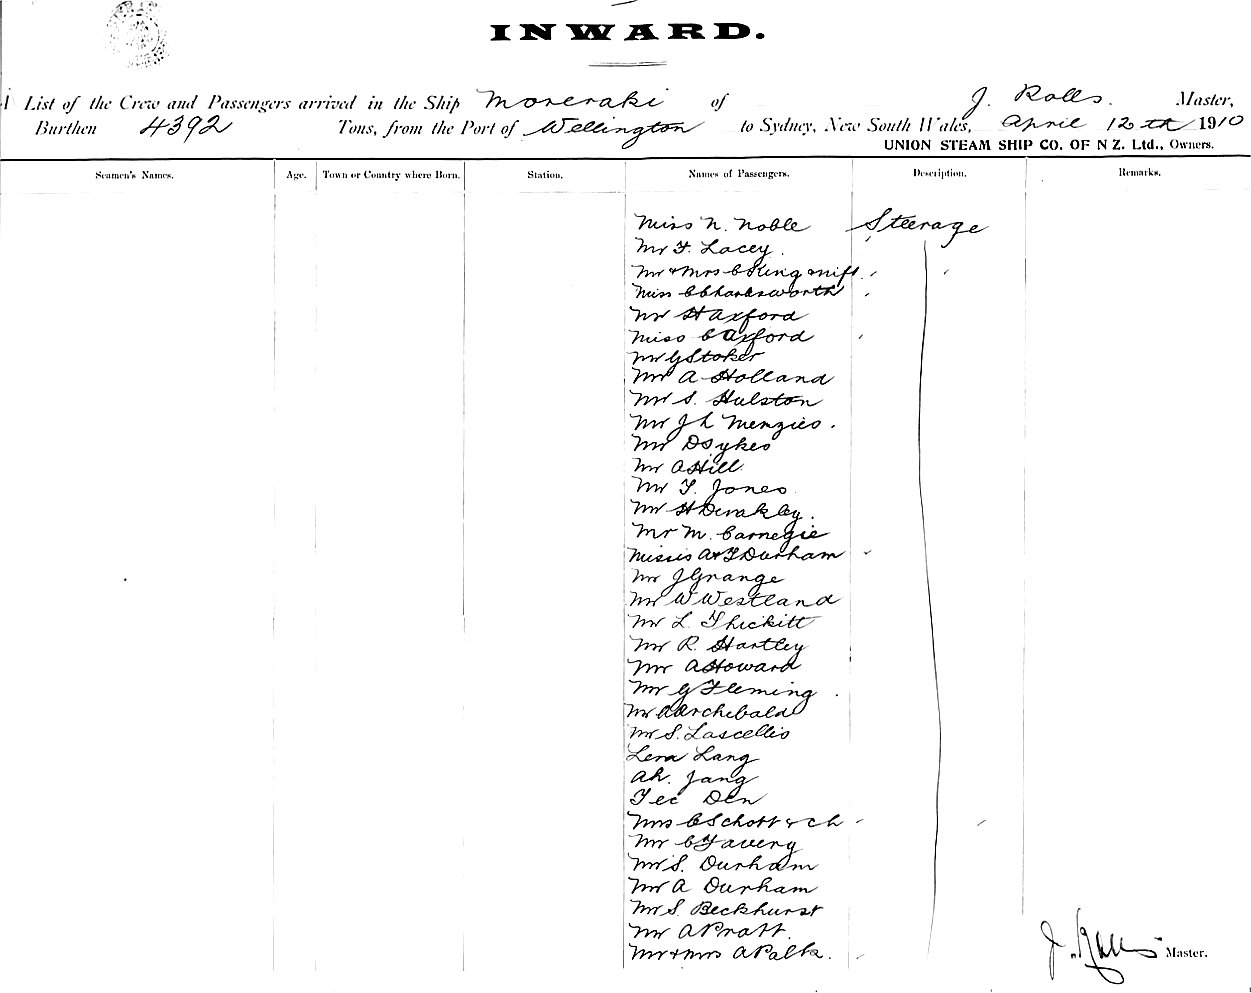 INWARD.
A List of the Crew and Passengers arrived in the Ship Moeraki of J. Rolls. Master,
Burthen 4392 Tons, from the Port of Wellington to Sydney, New South Wales, April 12th 1910
UNION STEAM SHIP CO. OF N Z. Ltd., Owners.
Seamen's Names. Age. Town or Country where Born. Station. Names of Passengers. Description. Remarks.
Miss N. Noble Steerage
Mr F. Lacey.
Mr & Mrs C King & inft.
Miss C Charlesworth
Mr H Axford
Miss C Axford
Mr G Stoker
Mr A Holland
Mr S. Hulston
Mr J L Menzies.
Mr D Sykes
Mr A Hill
Mr T. Jones
Mr H
Mr M. Carnegie
Misses A & F Durham
Mr J Grange
Mr W Westland
Mr L. Thickitt
Mr R. Hartley
Mr A Howard
Mr G Fleming
Mr A Archibald
Mr S. Lascelles
Lena Lang
Ah. Jang
Tee Den
Mrs C Schott & ch
Mr C
Mr S. Durham
Mr A Durham
Mr S. Beckhurst
Mr A Pratt.
Mr & Mrs A Palk.
J. Rolls Master.